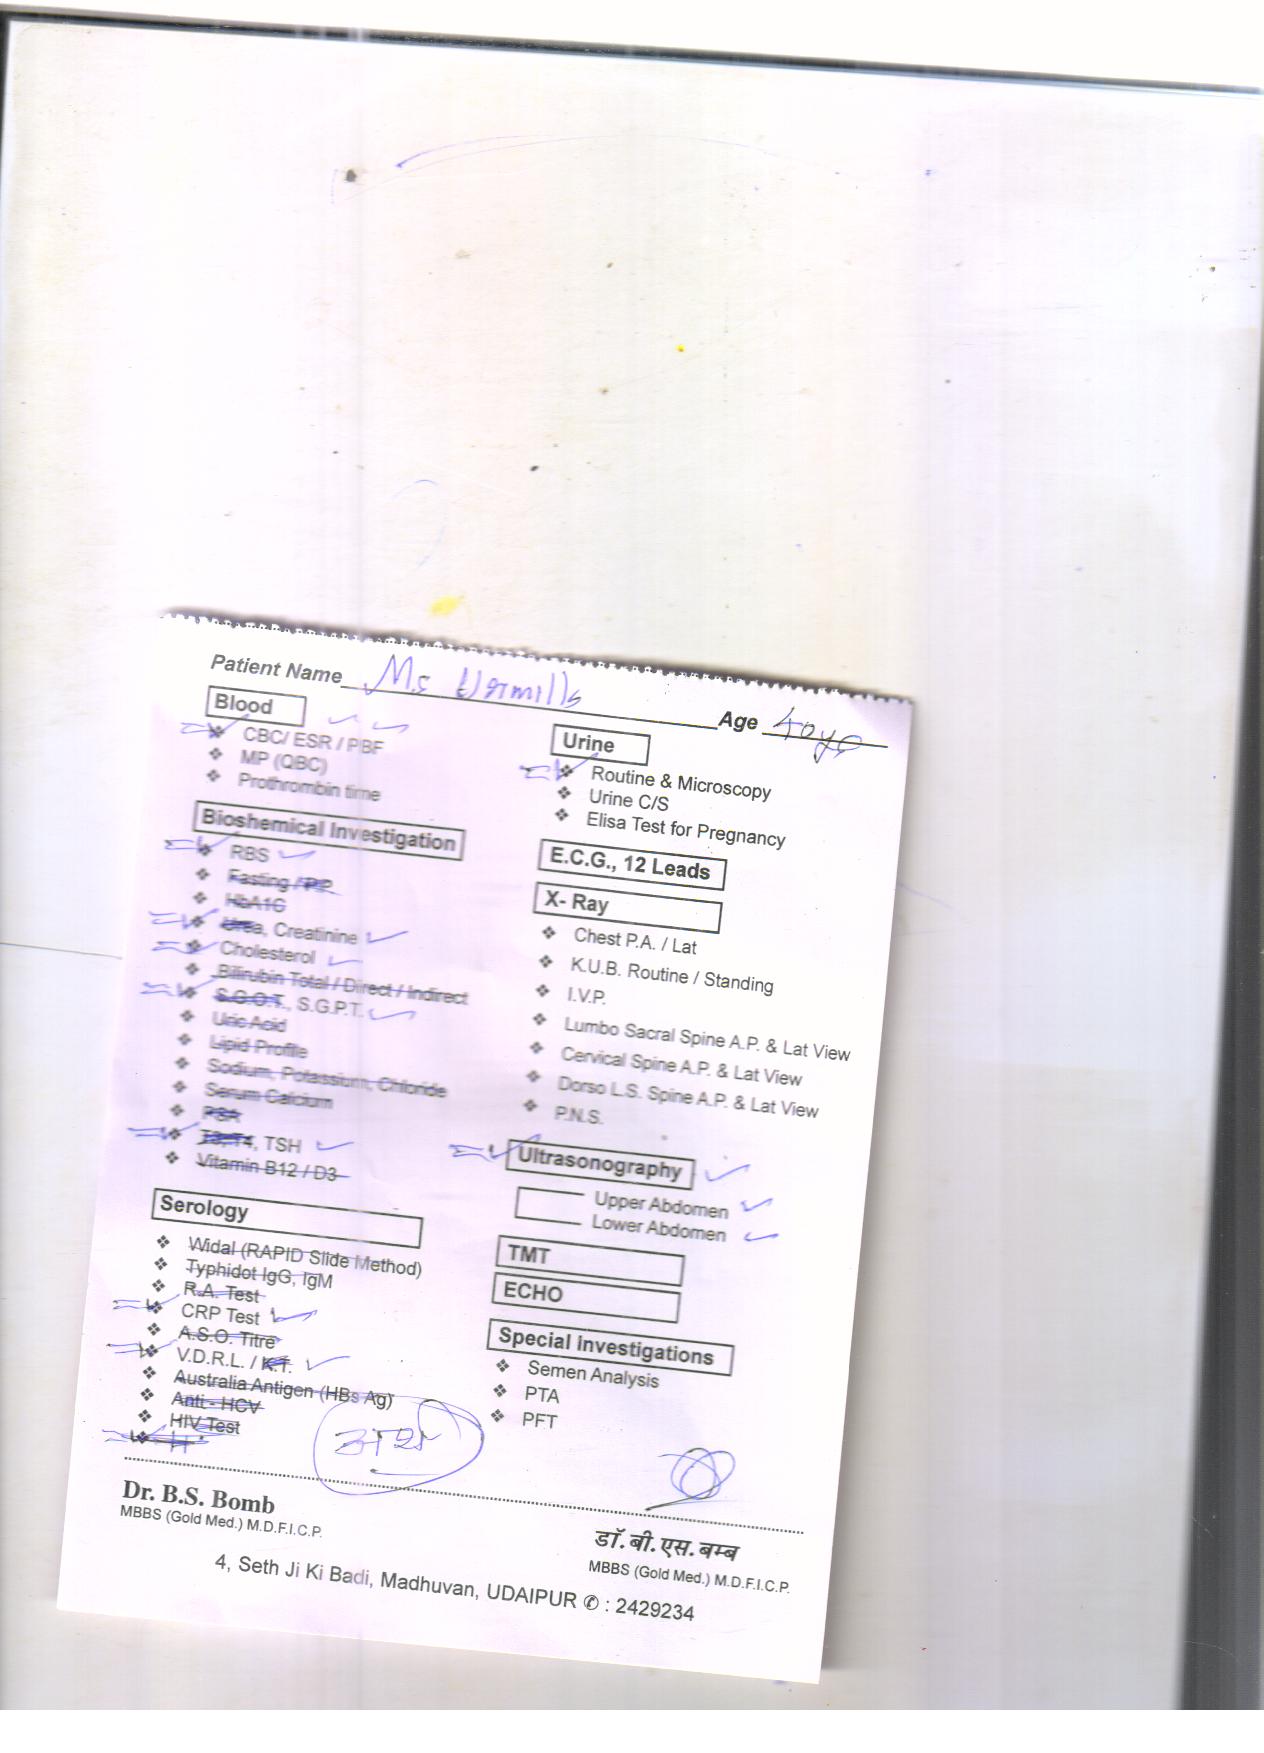 Patient Name Ms Urmills Age 40yo
Blood
CBC/ ESR / PBF
MP (QBC)
Prothrombin time
Bioshemical Investigation
RBS
Fasting / PP
HbA1C
Urea, Creatinine
Cholesterol
Bilirubin Total / Direct / Indirect
S.G.O.T., S.G.P.T.
Uric Acid
Lipid Profile
Sodium, Potassium, Chloride
Serum Calcium
PSA
T3, T4, TSH
Vitamin B12 / D3
Serology
Widal (RAPID Slide Method)
Typhidot IgG, IgM
R.A. Test
CRP Test
A.S.O. Titre
V.D.R.L. / K.T.
Australia Antigen (HBs Ag)
Anti - HCV
HIV Test
Urine
Routine & Microscopy
Urine C/S
Elisa Test for Pregnancy
E.C.G., 12 Leads
X- Ray
Chest P.A. / Lat
K.U.B. Routine / Standing
I.V.P.
Lumbo Sacral Spine A.P. & Lat View
Cervical Spine A.P. & Lat View
Dorso L.S. Spine A.P. & Lat View
P.N.S.
Ultrasonography
Upper Abdomen
Lower Abdomen
TMT
ECHO
Special Investigations
Semen Analysis
PTA
PFT
Dr. B.S. Bomb
MBBS (Gold Med.) M.D.F.I.C.P.
डॉ. बी. एस. बम्ब
MBBS (Gold Med.) M.D.F.I.C.P.
4, Seth Ji Ki Badi, Madhuvan, UDAIPUR ✆ : 2429234